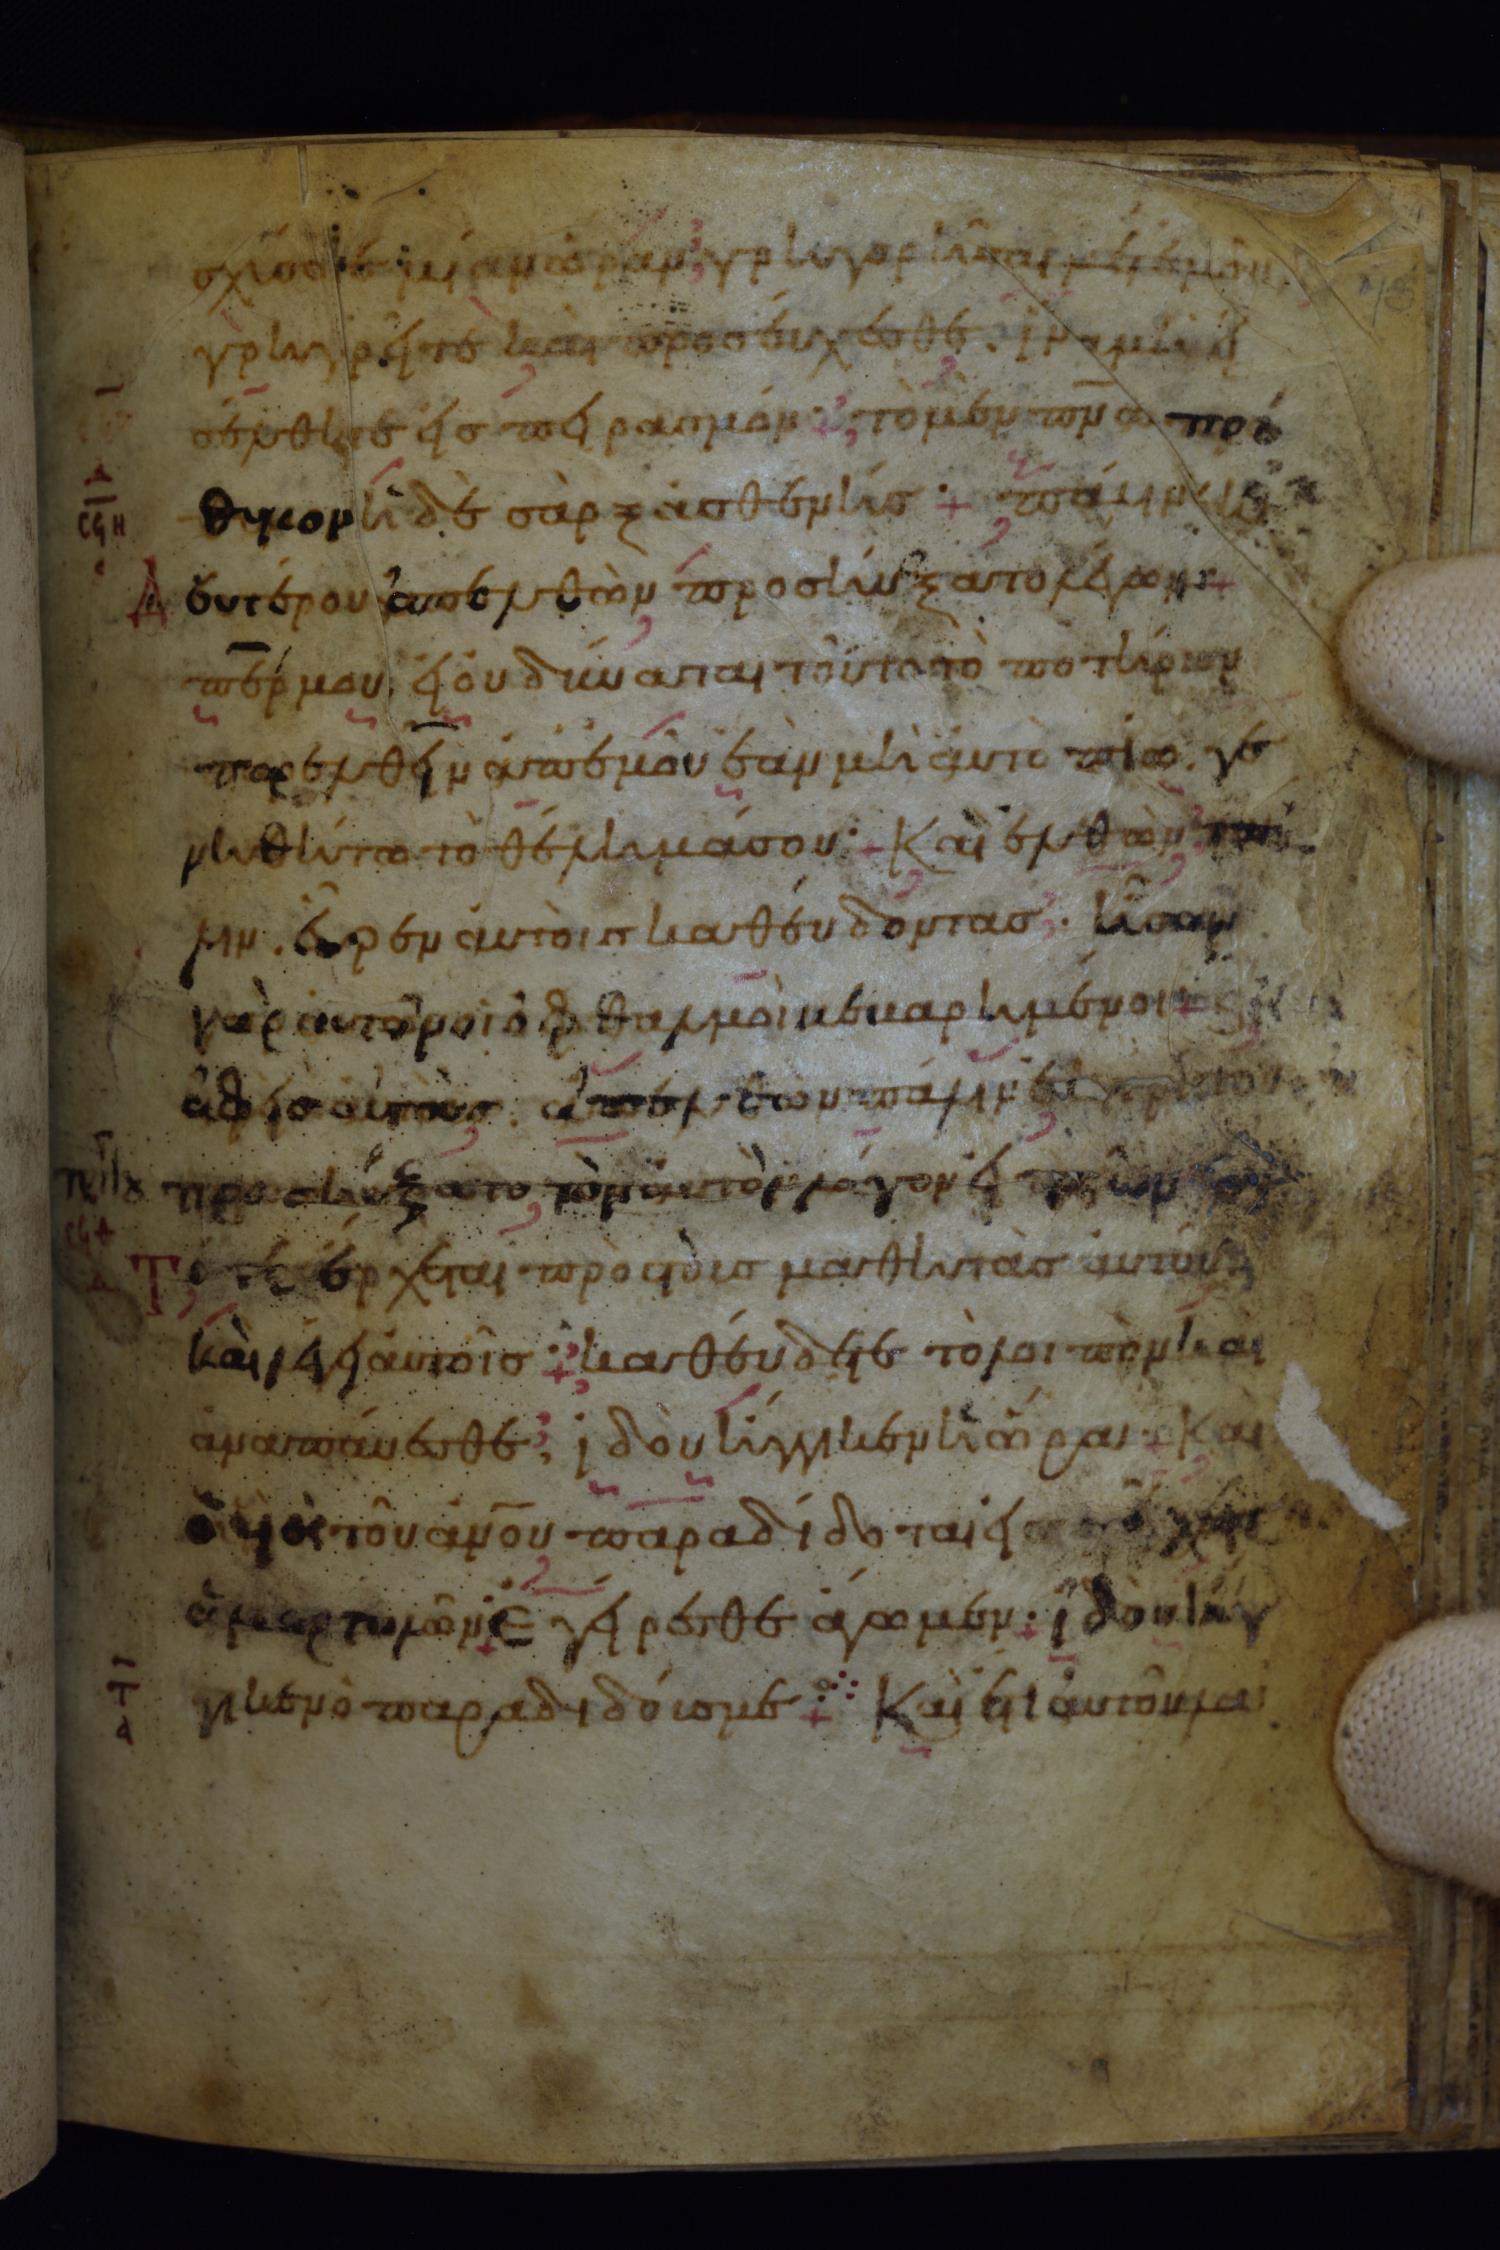 σχῦσαι μίαν ὥραν γρηγορῆσαι μετ ἐμοῦ
γρηγορεῖτε καὶ προσεύχεσθε. ἵνα μὴ εἰ
σέλθητε εἰς πειρασμόν· τὸ μὲν πν̅α πρό
θυμον ἡ δὲ σὰρξ ἀσθενής + πάλιν ἐκ
Δευτέρου ἀπελθὼν προσηύξατο λέγων +
πε̅ρ μου εἰ οὐ δύναται τοῦτο τὸ ποτήριον
παρελθεῖν ἀπ ἐμοῦ ἐὰν μὴ αὐτὸ πίω. γε
νηθήτω τὸ θέλημά σου· + Καὶ ἐλθὼν πά
λιν. εὗρεν αὐτοὺς καθεύδοντας· ἦσαν
γὰρ αὐτῶν οἱ ὀφθαλμοὶ βεβαρημένοι + κ
ἀφεὶς αὐτοὺς. ἀπελθὼν πάλιν
προσηύξατο τὸν αὐτὸν λόγον εἰπὼν
Τότε ἔρχεται πρὸς τοὺς μαθητὰς αὐτοῦ
καὶ λέγει αὐτοῖς + καθεύδετε τὸ λοιπὸν καὶ
ἀναπαύεσθε· ἰδοὺ ἤγγικεν ἡ ὥρα + Καὶ
ὁ υἱὸς τοῦ ἀν̅ου παραδίδοται εἰς χεῖρας
ἁμαρτωλῶν + Ἐγείρεσθε ἄγωμεν· + ἰδοὺ ἤγ
γικεν ὁ παραδιδούς με + Καὶ ἔτι αὐτοῦ λα